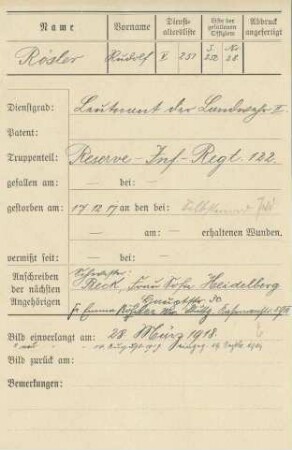 Name Vorname Dienst-altersliste Liste der gefallenen Offiziere Abdruck angefertigt
Rösler Rudolf V 251 S. 252 Nr. 28.
Dienstgrad: Leutnant der Landwehr II.
Patent:
Truppenteil: Reserve-Inf-Regt. 122.
gefallen am: — bei: —
gestorben am: 17.12.17 an den bei:
— am: — erhaltenen Wunden.
vermißt seit: — bei: —
Anschreiben der nächsten Angehörigen
Reck, Frau Sofie Heidelberg
Hauptstr. 30
Fr. Emma
Bild einverlangt am: 28. März 1918.
Bild zurück am:
Bemerkungen: